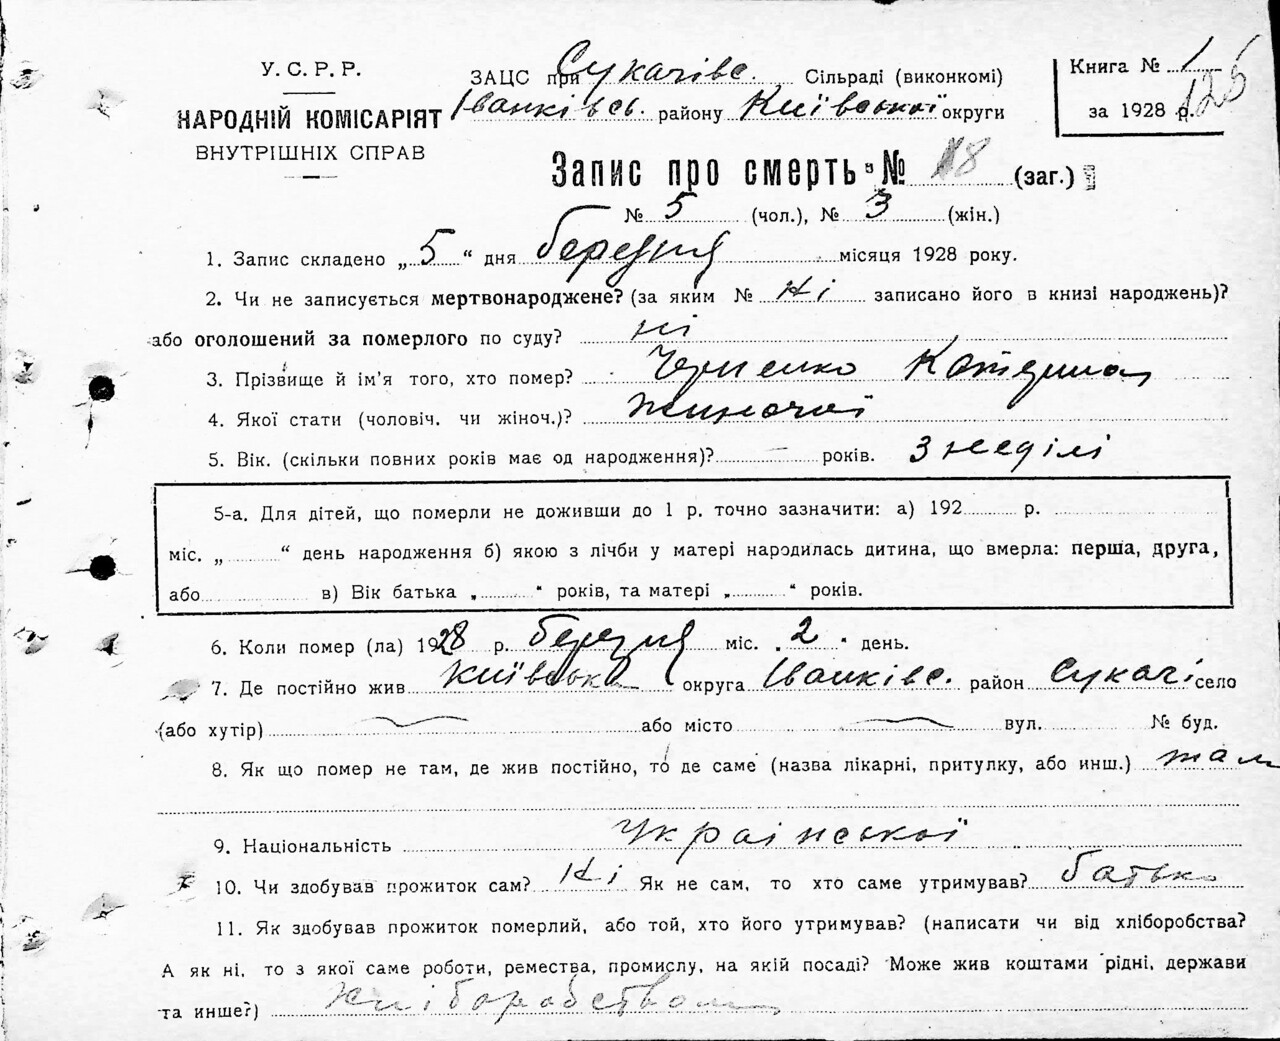 У. С. Р. Р.
НАРОДНІЙ КОМІСАРІЯТ
ВНУТРІШНІХ СПРАВ
ЗАЦС при Сукачівс. Сільраді (виконкомі)
Іванківсь. району Київської округи
Книга № 1
за 1928 р.
125
Запис про смерть № 8 (заг.)
№ 5 (чол.), № 3 (жін.)
1. Запис складено „5“ дня березня місяця 1928 року.
2. Чи не записується мертвонароджене? (за яким № Ні записано його в книзі народжень)?
або оголошений за померлого по суду? ні
3. Прізвище й ім'я того, хто помер? Катерина
4. Якої стати (чоловіч. чи жіноч.)? жиночої
5. Вік. (скільки повних років має од народження)? — років. 3 неділі
5-а. Для дітей, що померли не доживши до 1 р. точно зазначити: а) 192 р.
міс. „ “ день народження б) якою з лічби у матері народилась дитина, що вмерла: перша, друга,
або в) Вік батька „ “ років, та матері „ “ років.
6. Коли помер (ла) 1928 р. березня міс. „2“ день.
7. Де постійно жив Київська округа Іванківс. район Сукачі село
(або хутір) або місто вул. № буд.
8. Як що помер не там, де жив постійно, то де саме (назва лікарні, притулку, або инш.) там
9. Національність Української
10. Чи здобував прожиток сам? Ні Як не сам, то хто саме утримував? батько
11. Як здобував прожиток померлий, або той, хто його утримував? (написати чи від хліборобства?
А як ні, то з якої саме роботи, ремества, промислу, на якій посаді? Може жив коштами рідні, держави
та инше?) хліборобством